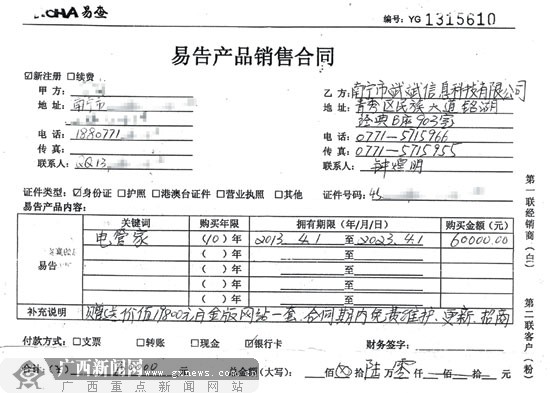 易查
编号：YG 1315610
易告产品销售合同
☑新注册 □续费
甲 方：
地 址：南宁市
电 话：1880771
传 真：
联系人：
乙 方：南宁市斌斌信息科技有限公司
地 址：青秀区民族大道铭湖
经典B座903室
电 话：0771-5715966
传 真：0771-5715955
联系人：钟煜明
证件类型：☑身份证 □护照 □港澳台证件 □营业执照 □其他
证件号码：45
易告产品内容：
关键词 购买年限 拥有期限（年/月/日） 购买金额（元）
易告
电管家 （10）年 2013.4.1 至 2023.4.1 60000.00
（ ）年 至
（ ）年 至
（ ）年 至
（ ）年 至
补充说明 赠送价值17800元白金版网站一套，合同期内免费维护、更新、招商
付款方式： □支票 □转账 □现金 ☑银行卡
财务签字：
合计（¥） 元
总金额（大写）： 佰 拾 陆 万 零 仟 佰 拾 元
第一联经销商（白） 第二联客户（粉）
广西新闻网
www.gxnews.com.cn
广西重点新闻网站